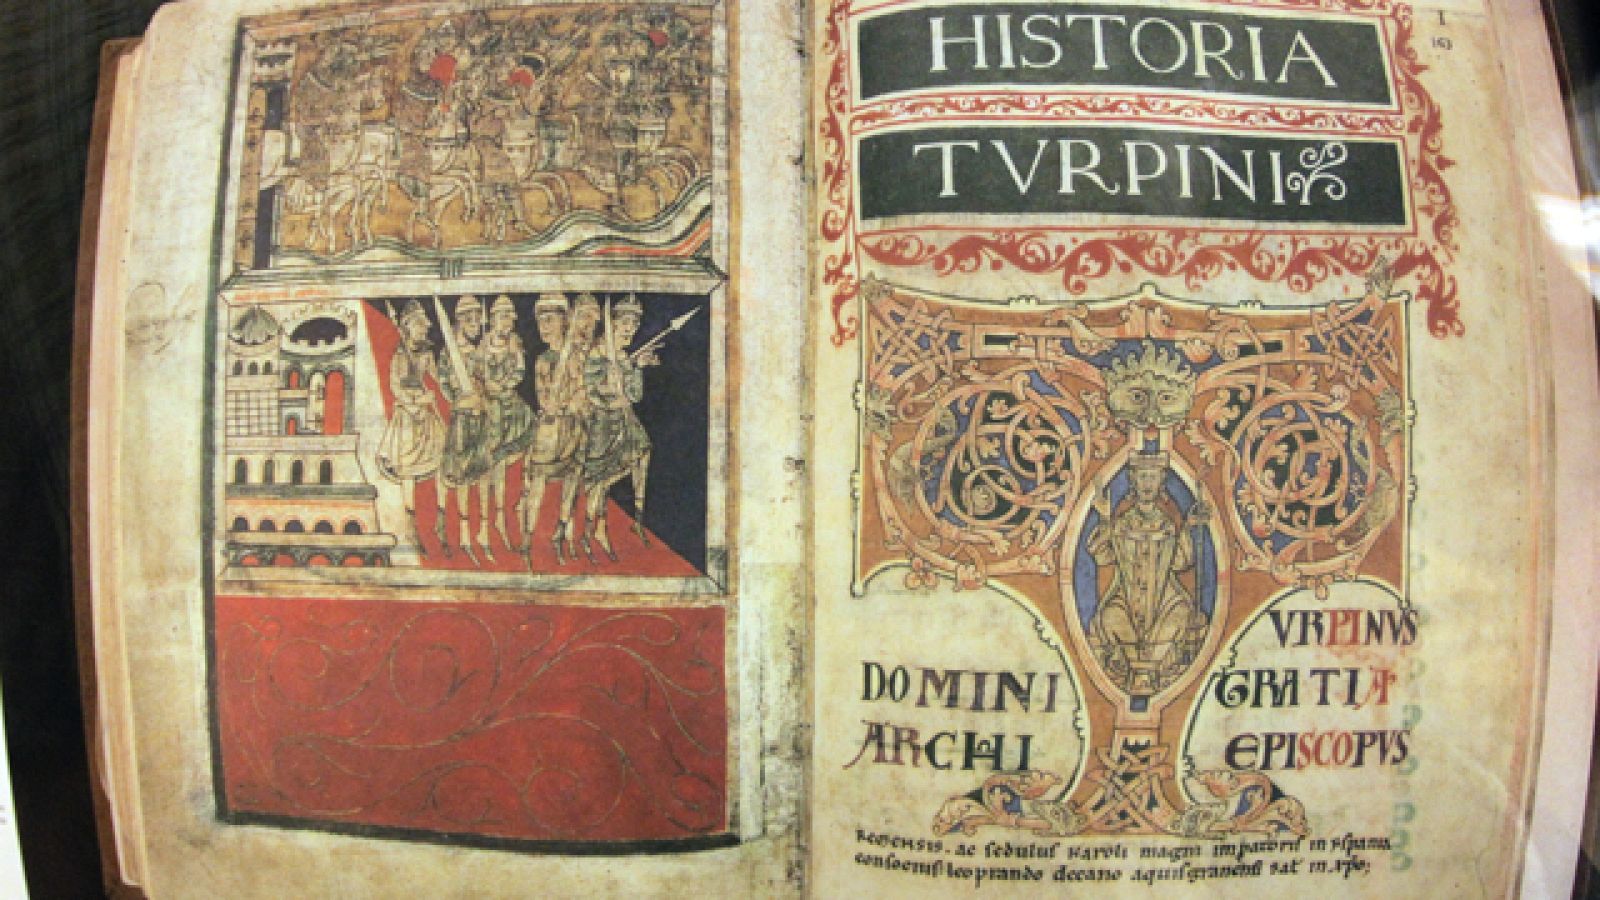 HISTORIA
TVRPINI
I
163
VRPINVS
DOMINI GRATIA
ARCHI EPISCOPVS
REMENSIS. ac sedulus karoli magni impatoris in ispania
consocius: leoprando decano aquisgranensi sat in xpo;